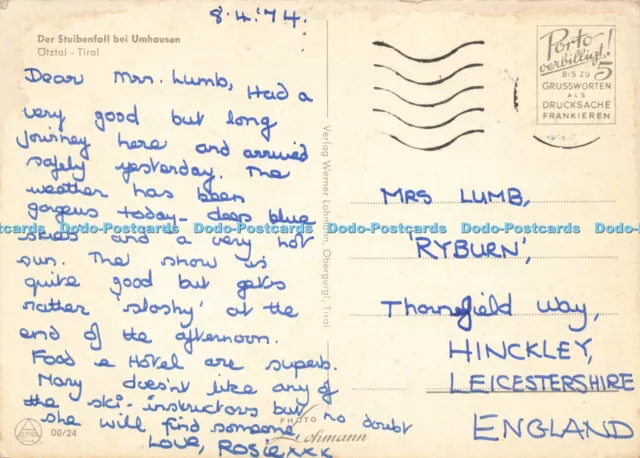 8.4.'74.
Der Stuibenfall bei Umhausen
Ötztal - Tirol
Dear Mrs. Lumb, Had a
very good but long
journey here and arrived
safely yesterday. The
weather has been
gorgeus today - deep blue
skies and a very hot
sun. The snow is
quite good but gets
rather 'sloshy' at the
end of the afternoon.
Food & Hotel are superb.
Mary doesn't like any of
the ski-instructors but no doubt
she will find someone
Love, Rosie xxx
00/24
PHOTO
Lohmann
Verlag Werner Lohmann, Obergurgl, Tirol
Porto
verbilligt!
BIS ZU 5
GRUSSWORTEN
ALS
DRUCKSACHE
FRANKIEREN
MRS LUMB,
'RYBURN',
Thornefield Way,
HINCKLEY,
LEICESTERSHIRE
ENGLAND
Dodo-Postcards Dodo-Postcards Dodo-Postcards Dodo-Postcards Dodo-Postcards